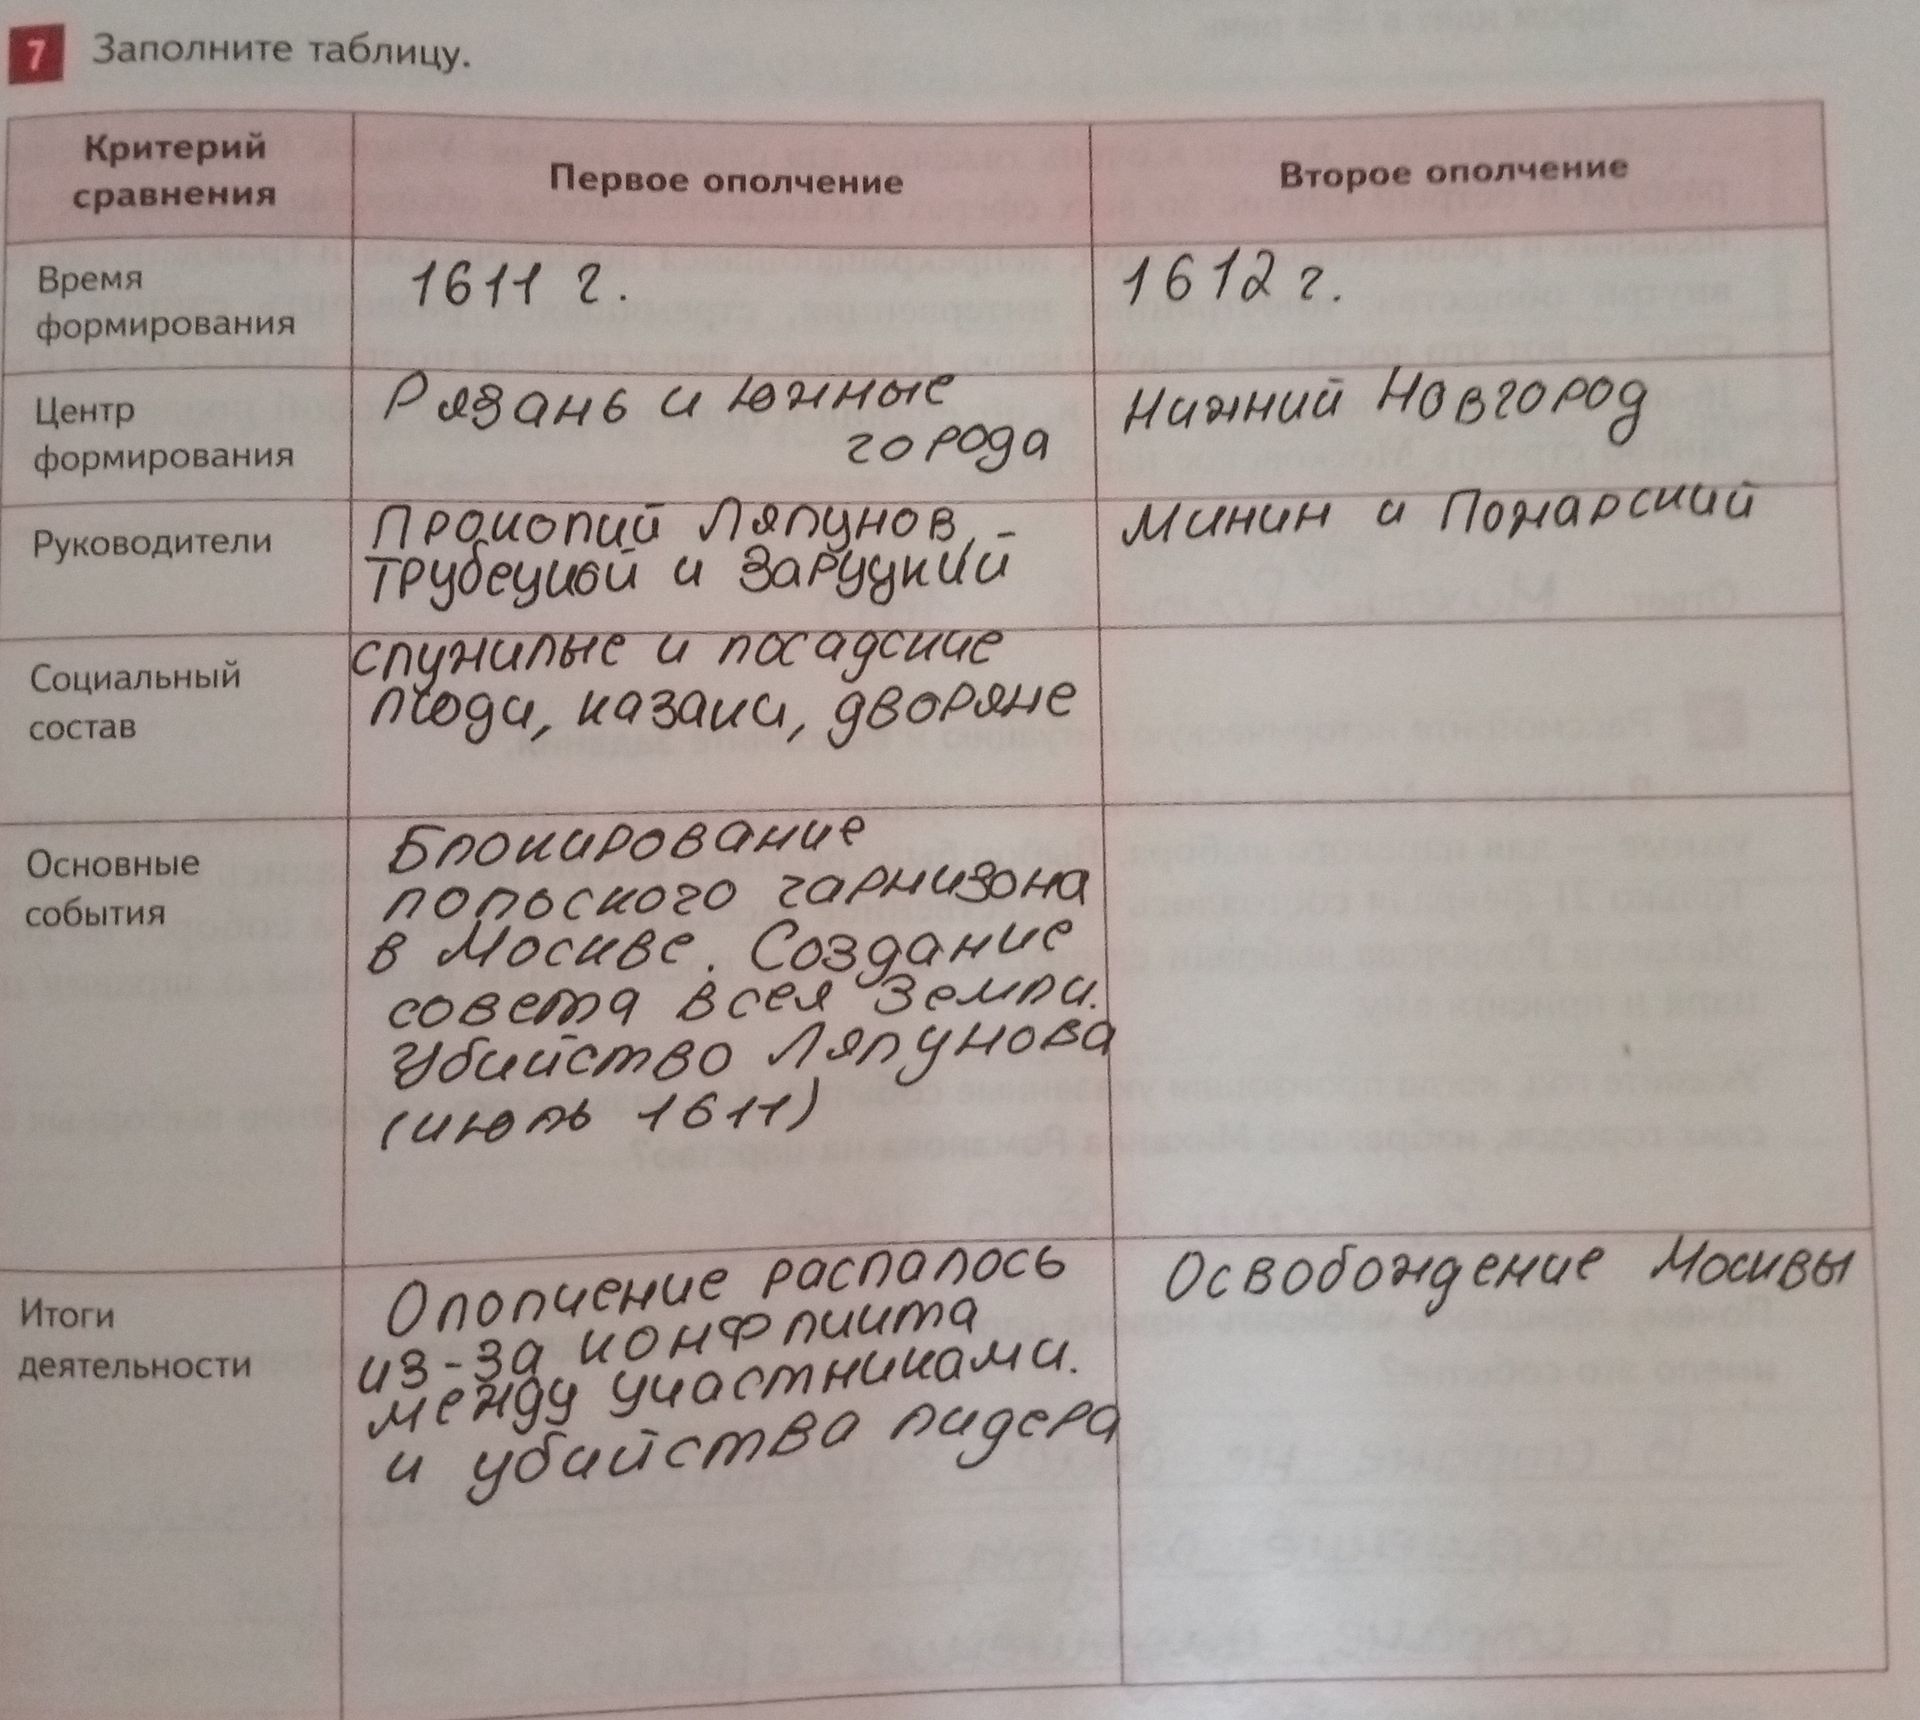 7 Заполните таблицу.
Критерий
сравнения
Первое ополчение
Второе ополчение
Время
формирования
1611 г.
1612 г.
Центр
формирования
Рязань и южные
города
Нижний Новгород
Руководители
Прокопий Ляпунов,
Трубецкой и Заруцкий
Минин и Пожарский
Социальный
состав
служилые и посадские
люди, казаки, дворяне
Основные
события
Блокирование
польского гарнизона
в Москве. Создание
совета всея Земли.
Убийство Ляпунова
(июль 1611)
Итоги
деятельности
Ополчение распалось
из-за конфликта
между участниками.
и убийства лидера
Освобождение Москвы